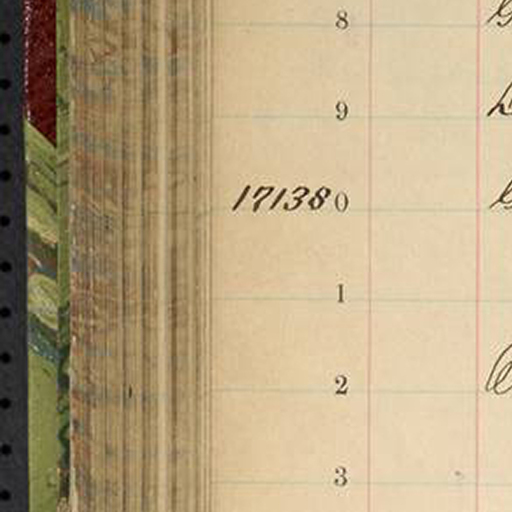 8
9
171380
1
2
3